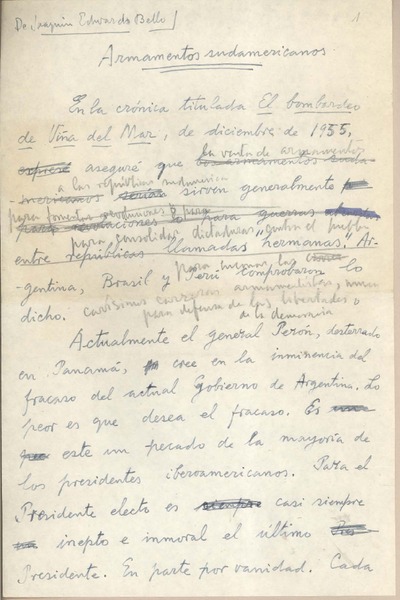 De Joaquín Edwards Bello
1
Armamentos sudamericanos
En la crónica titulada El bombardeo
de Viña del Mar, de diciembre de 1955,
la venta de armamentos
expresé aseguré que los armamentos suda-
a las repúblicas sudamerica
-mericanos serían sirven generalmente
para fomentar revoluciones o para
para revoluciones o para guerras
para consolidar dictaduras, contra el pueblo
entre repúblicas llamadas hermanas. Ar-
para humor las
-gentina, Brasil y Perú comprobaron lo
dicho. carísimas carreras armamentistas, nunca
para defensa de las libertades o
de la democracia
Actualmente el general Perón, desterrado
en Panamá, cree en la inminencia del
fracaso del actual Gobierno de Argentina. Lo
peor es que desea el fracaso. Es
que este un pecado de la mayoría de
los presidentes iberoamericanos. Para el
Presidente electo es siempre casi siempre
inepto e inmoral el último Pres-
Presidente. En parte por vanidad. Cada